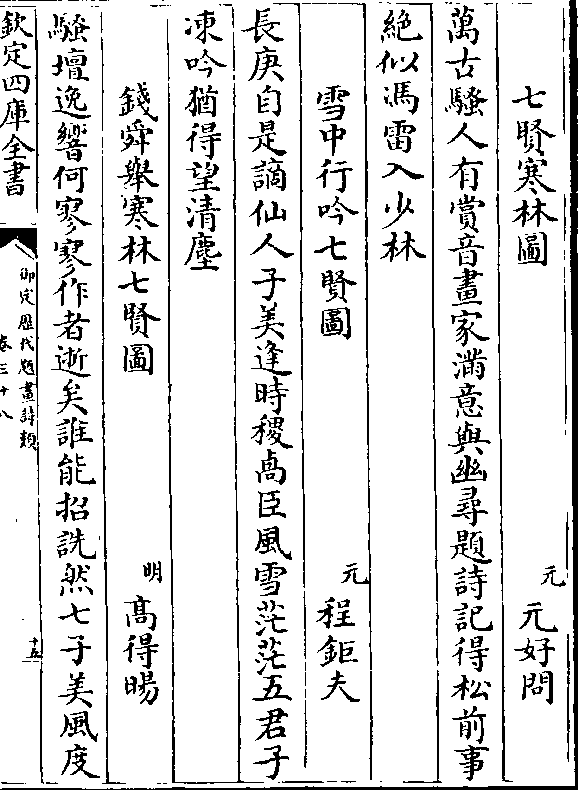 七賢寒林圖　元　元好問
萬古騷人有賞音畫家滿意與幽尋題詩記得松前事
絶似馮雷入少林
雪中行吟七賢圖　元　程鉅夫
長庚自是謫仙人子美逢時稷卨臣風雪茫茫五君子
凍吟猶得望清塵
錢舜舉寒林七賢圖　明　高得暘
騷壇逸響何寥寥作者逝矣誰能招詵然七子美風度
欽定四庫全書
御定歷代題畫詩類
卷三十八
十五